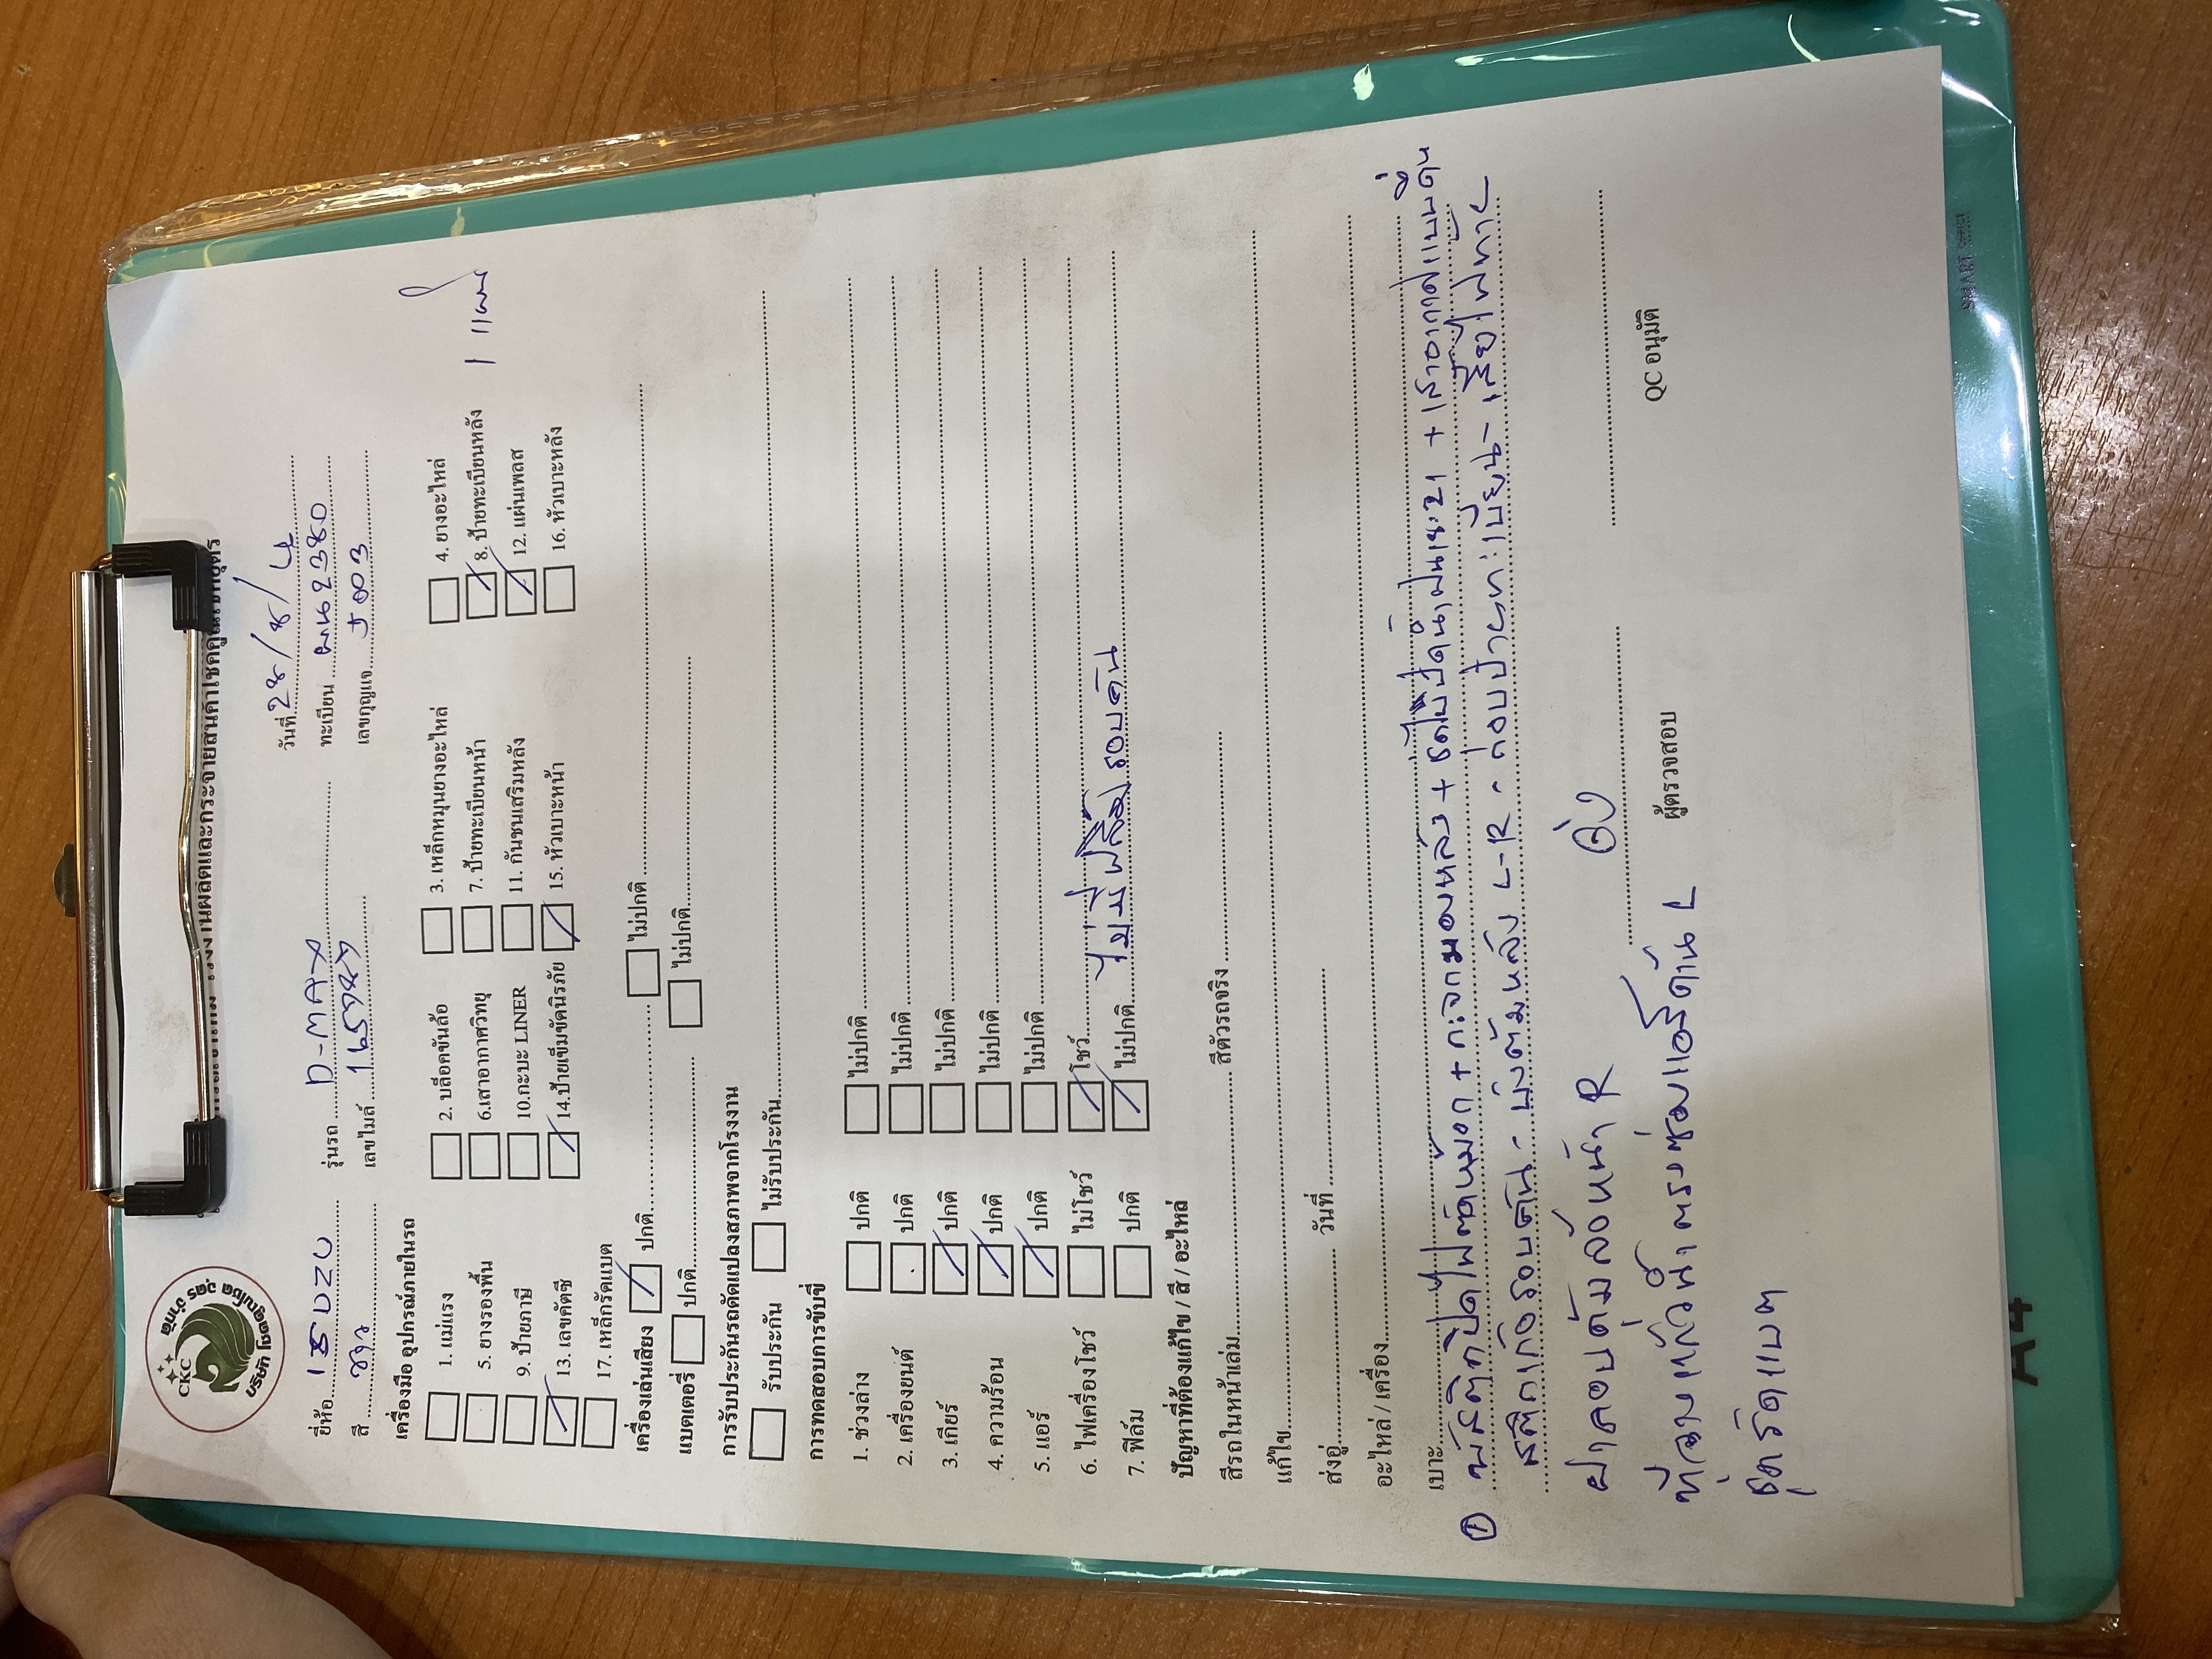 CKC
บริษัท โชคคูณโชค บุตร จำกัด
โรงงานผลิตและกระจายสินค้าโชคคูณโชคบุตร
วันที่ 28/8/
ยี่ห้อ ISUZU รุ่นรถ D-MAX ทะเบียน 2380
สี ขาว เลขไมล์ เลขกุญแจ 003
เครื่องมือ อุปกรณ์ภายในรถ
1. แม่แรง 2. บล็อคขันล้อ 3. เหล็กหมุนยางอะไหล่ 4. ยางอะไหล่
5. ยางรองพื้น 6.เสาอากาศวิทยุ 7. ป้ายทะเบียนหน้า 8. ป้ายทะเบียนหลัง 1 แผ่น
9. ป้ายภาษี 10.กะบะ LINER 11. กันชนเสริมหลัง 12. แผ่นเพลส
13. เลขคัตซี 14.ป้ายเข็มขัดนิรภัย 15. หัวเบาะหน้า 16. หัวเบาะหลัง
17. เหล็กรัดแบต
เครื่องเล่นเสียง ปกติ ไม่ปกติ
แบตเตอรี่ ปกติ ไม่ปกติ
การรับประกันรถดัดแปลงสภาพจากโรงงาน
รับประกัน ไม่รับประกัน
การทดสอบการขับขี่
1. ช่วงล่าง ปกติ ไม่ปกติ
2. เครื่องยนต์ ปกติ ไม่ปกติ
3. เกียร์ ปกติ ไม่ปกติ
4. ความร้อน ปกติ ไม่ปกติ
5. แอร์ ปกติ ไม่ปกติ
6. ไฟเครื่องโชว์ ไม่โชว์ โชว์
7. ฟิล์ม ปกติ ไม่ปกติ ไม่มีฟิล์มรอบคัน
ปัญหาที่ต้องแก้ไข / สี / อะไหล่
สีรถในหน้าเล่ม สีตัวรถจริง
แก้ไข
ส่งอู่ วันที่
อะไหล่ / เครื่อง
เบาะ
① พลาสติกปิดไฟตัดหมอก + กระจกมองหลัง + + เสาอากาศแบบสั้น
สติกเก้อรอบคัน - บังโคลนหลัง L-R - กอบป้ายทะเบียน - เสื้อไฟท้าย L
ฝาครอบดุมล้อหน้า R อ่ง
ที่ฉาบแก้วฟ้า ตรงช่องแอร์ด้าน L
ชุดรัดแบต
ผู้ตรวจสอบ QC อนุมัติ
A4
SMART OFFICE